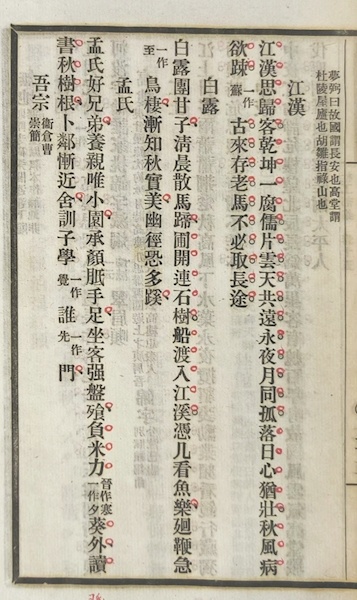 夢弼曰故國謂長安也高堂謂
杜陵屋廬也胡雛指祿山也
江漢
江漢思歸客乾坤一腐儒片雲天共遠永夜月同孤落日心猶壯秋風病
欲疎一作蘇古來存老馬不必取長途
白露
白露團甘子清晨散馬蹄圃開連石樹船渡入江溪憑几看魚樂廻鞭急
一作至鳥棲漸知秋實美幽徑恐多蹊
孟氏
孟氏好兄弟養親唯小園承顏胝手足坐客强盤飧負米力一作夕葵外讀
書秋樹根卜鄰漸近舍訓子學一作覺誰一作先門
吾宗衞倉曹崇簡